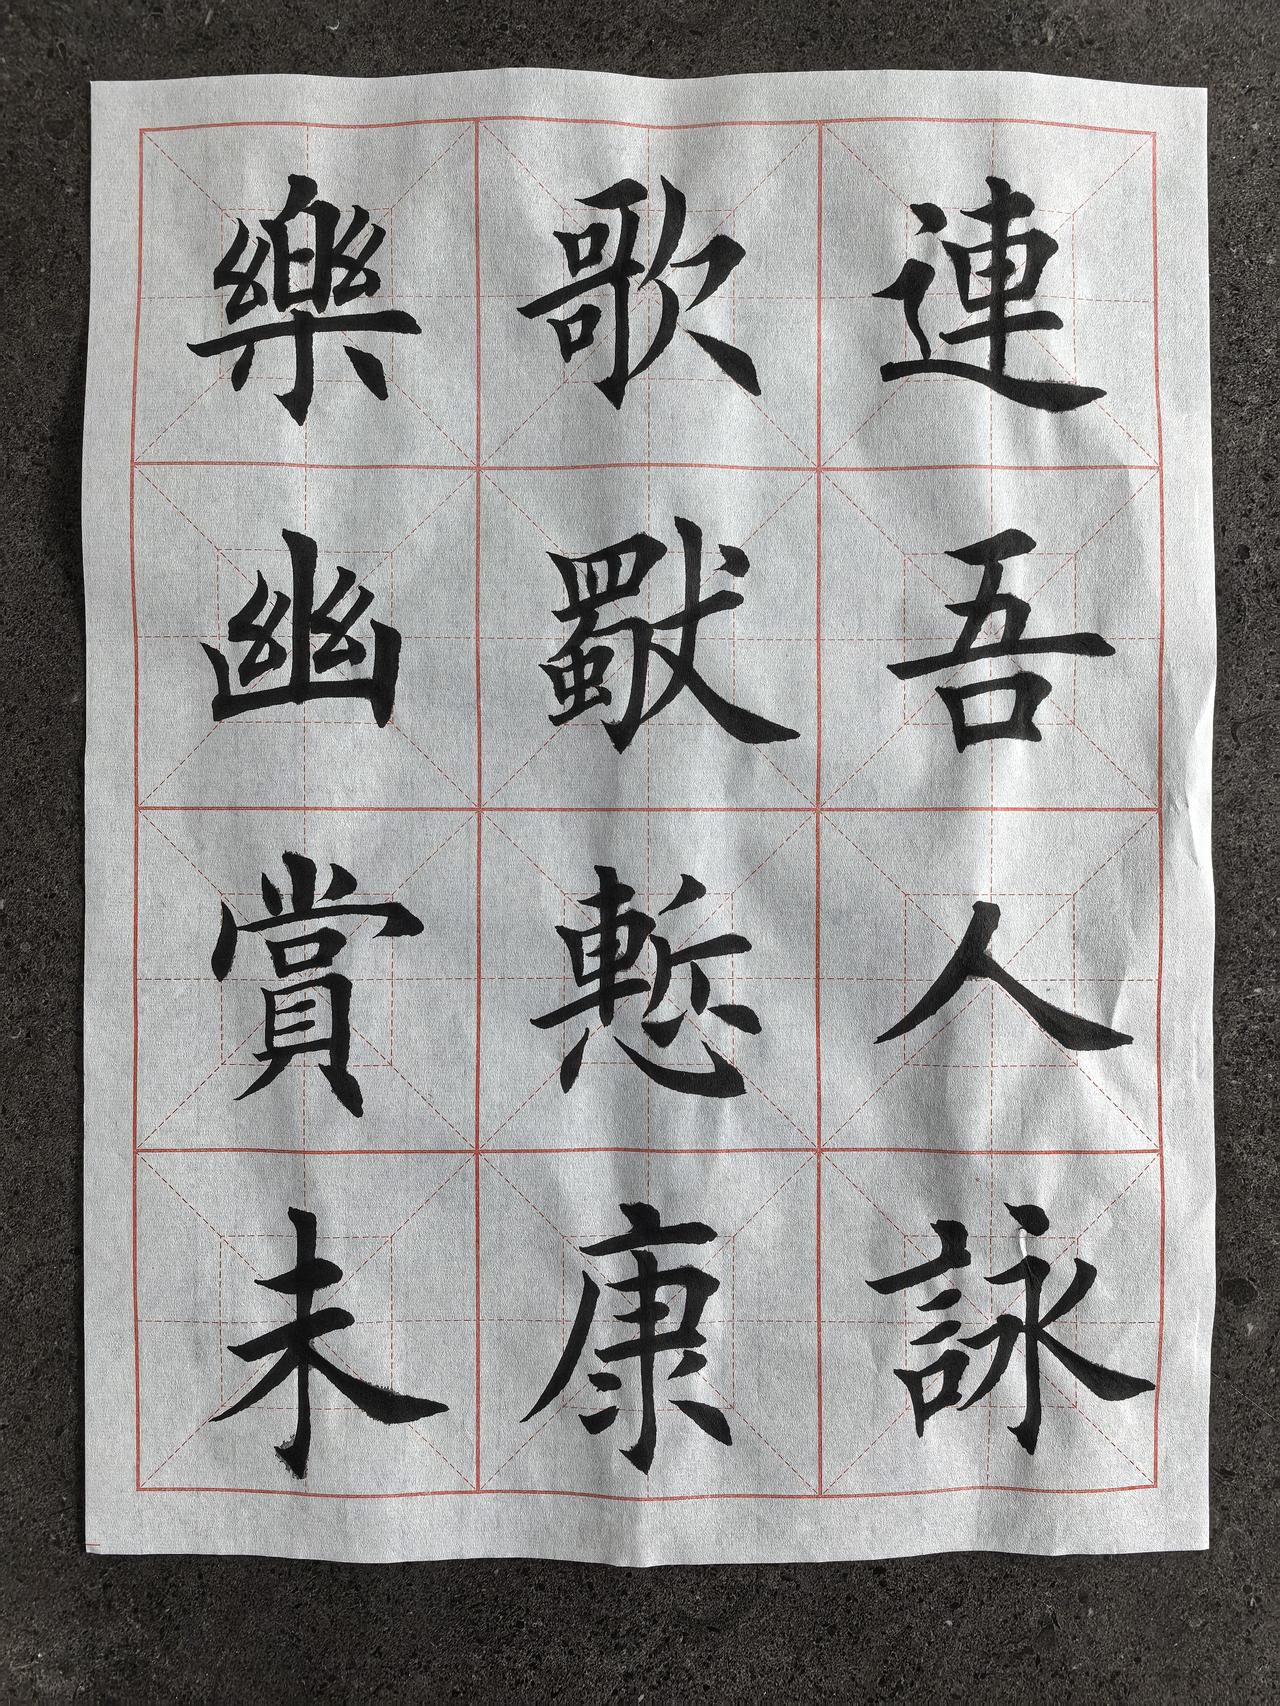 連吾人詠
歌獨慙康
樂幽賞未